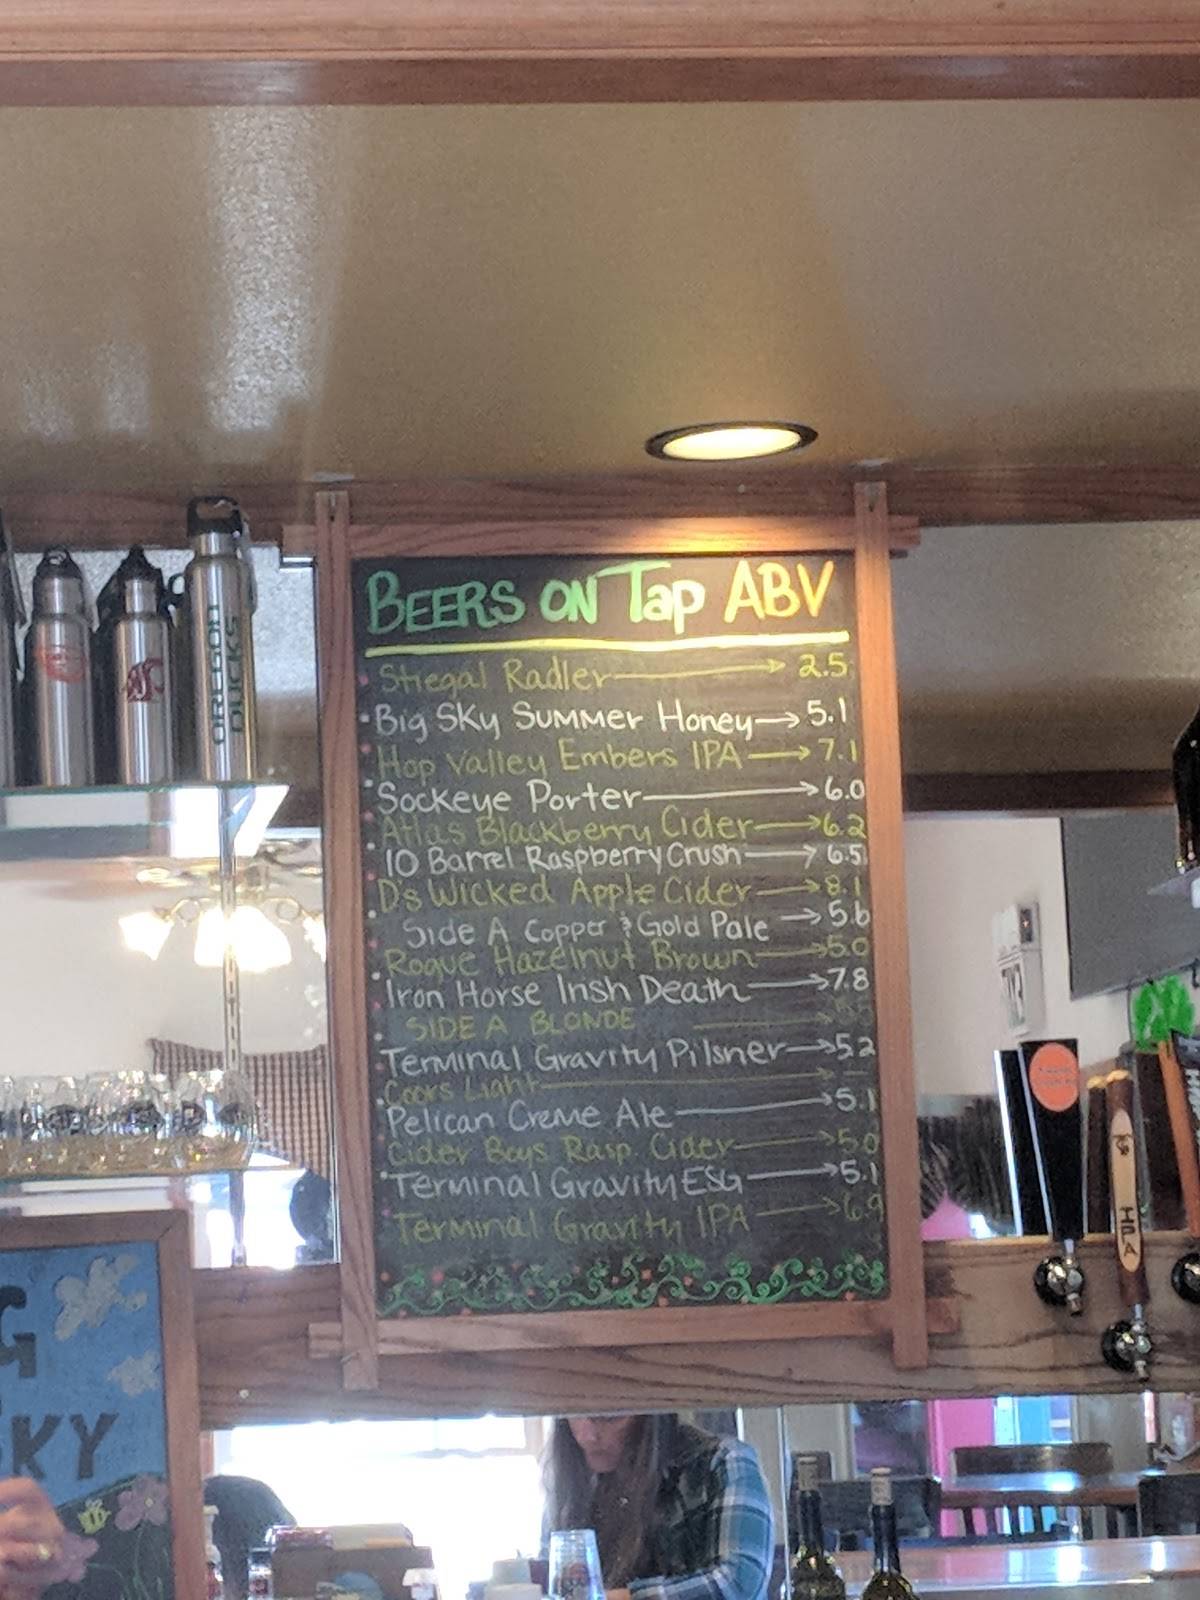 BEERS ON Tap ABV
Stiegal Radler → 2.5
Big Sky Summer Honey → 5.1
Hop Valley Embers IPA → 7.1
Sockeye Porter → 6.0
Atlas Blackberry Cider → 6.2
10 Barrel Raspberry Crush → 6.5
D's Wicked Apple Cider → 8.1
Side A Copper & Gold Pale → 5.6
Rogue Hazelnut Brown → 5.0
Iron Horse Irish Death → 7.8
SIDE A BLONDE →
Terminal Gravity Pilsner → 5.2
Coors Light →
Pelican Creme Ale → 5.1
Cider Boys Rasp. Cider → 5.0
Terminal Gravity ESG → 5.1
Terminal Gravity IPA → 6.9
OREGON
DUCKS
IPA
G
KY